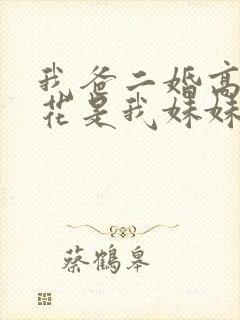 我爸二婚高
花是我妹妹
蔡鹤皋